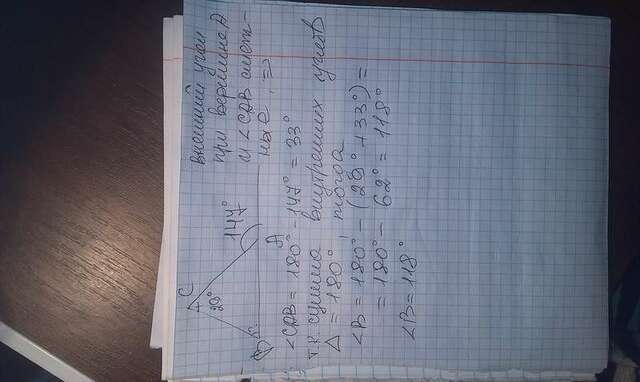 C
29°
147°
B
A
внешний угол
при вершине А
и <CAB смеж-
ные, =>
<CAB = 180° - 147° = 33°
т.к сумма внутренних углов
△ = 180°, тогда
<B = 180° - (29° + 33°) =
= 180° - 62° = 118°
<B = 118°